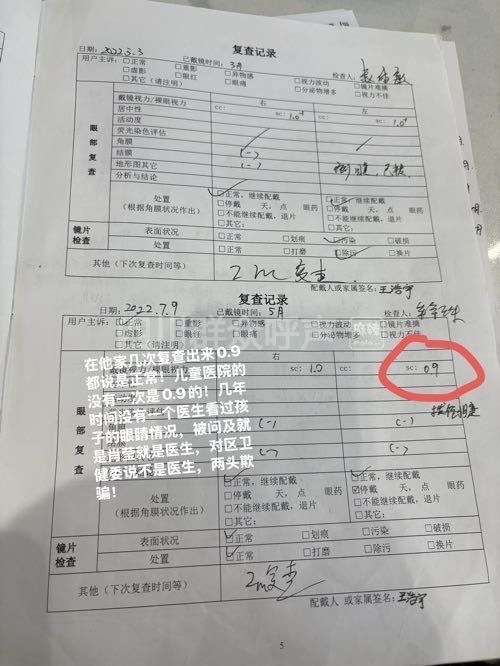 复查记录
日期: 2022.3.3 已戴镜时间: 3月 检查人:
用户主诉: □正常 □重影 □异物感 □视力波动 □镜片难摘
□虚影 □眼红 □眼痛 □分泌物增多 □视力不佳
□其它(请注明)
右 左
戴镜视力/裸眼视力 cc: sc: 1.0+ cc: sc: 1.0+
眼部复查
居中性
活动度
荧光染色评估
角膜
结膜 (-)
地形图其它 (-)
分析与结论
处置
(根据角膜状况作出)
□正常,继续配戴 □正常,继续配戴
□停戴 天,点 眼药 □停戴 天,点 眼药
□不能继续配戴,退片 □不能继续配戴,退片
□其它: □其它:
镜片检查
表面状况 □正常 □划痕 □污染 □破损
处置 □正常 □打磨 □除污 □换片
其他(下次复查时间等) 2m复查
配戴人或家属签名: 王浩宇
复查记录
日期: 2022.7.9 已戴镜时间: 5月 检查人:
用户主诉: □正常 □重影 □异物感 □视力波动 □镜片难摘
□虚影 □眼红 □眼痛 □分泌物增多 □视力不佳
□其它(请注明)
戴镜视力/裸眼视力 sc: 1.0 cc: sc: 0.9
在他家几次复查出来0.9
都说是正常!儿童医院的
没有一次是0.9的!几年
时间没有一个医生看过孩
子的眼睛情况,被问及就
是肖莹就是医生,对区卫
健委说不是医生,两头欺
骗!
眼部复查
(-) (-)
(-) (-)
处置
(根据角膜状况作出)
□正常,继续配戴 □正常,继续配戴
□停戴 天,点 眼药 □停戴 天,点 眼药
□不能继续配戴,退片 □不能继续配戴,退片
□其它: □其它:
镜片检查
表面状况 □正常 □划痕 □污染 □破损
处置 □正常 □打磨 □除污 □换片
其他(下次复查时间等) 2m复查
配戴人 或家属签名: 王浩宇
5